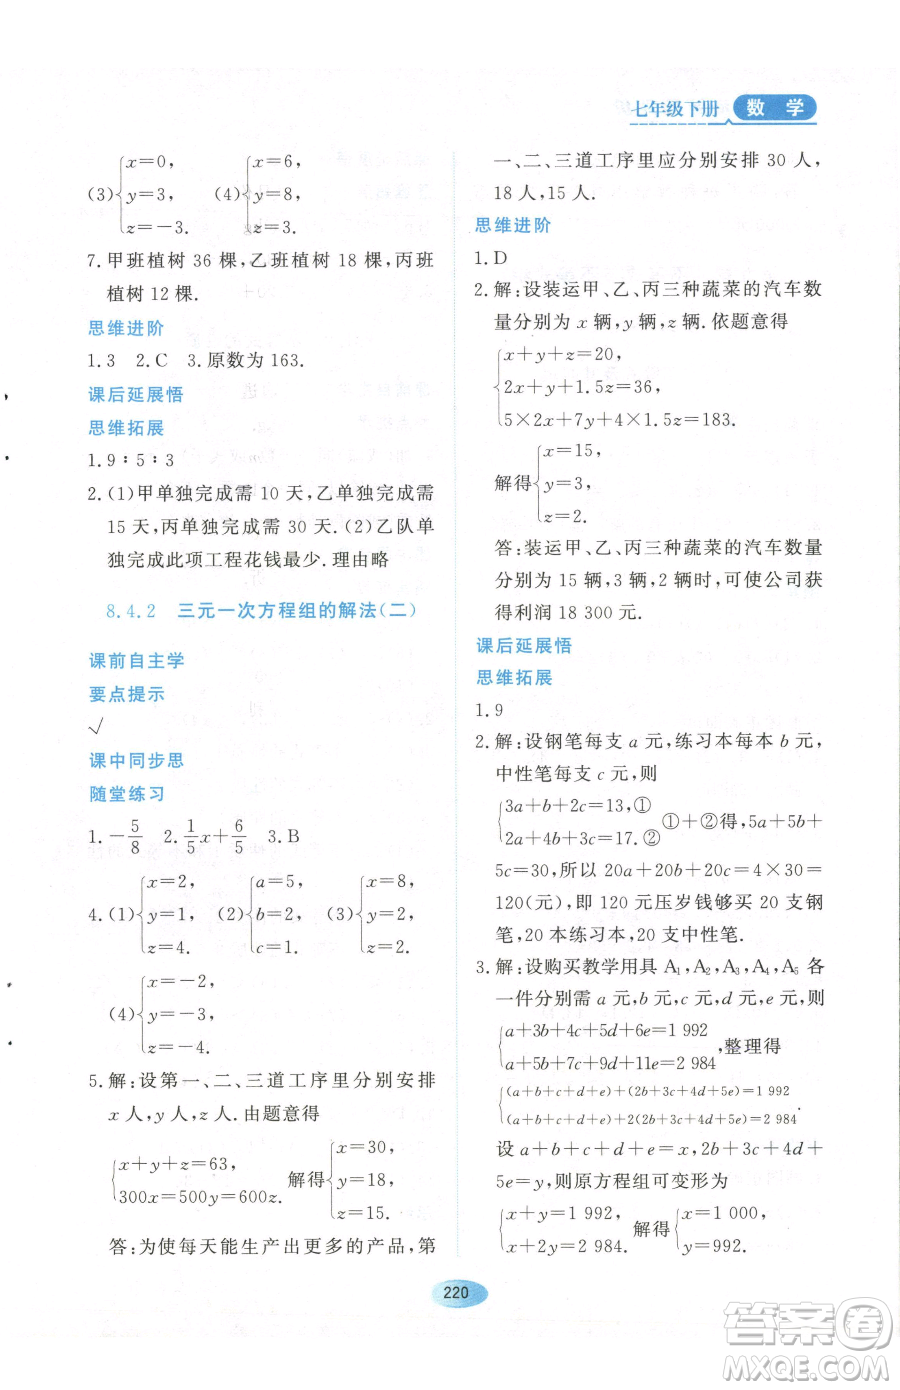 七年级下册 数学
(3){x=0, y=3, z=-3. (4){x=6, y=8, z=3.
7.甲班植树 36 棵,乙班植树 18 棵,丙班
植树 12 棵.
思维进阶
1.3 2.C 3.原数为 163.
课后延展悟
思维拓展
1.9∶5∶3
2.(1)甲单独完成需 10 天,乙单独完成需
15 天,丙单独完成需 30 天.(2)乙队单
独完成此项工程花钱最少.理由略
8.4.2 三元一次方程组的解法(二)
课前自主学
要点提示
√
课中同步思
随堂练习
1.-5/8 2.1/5x+6/5 3.B
4.(1){x=2, y=1, z=4. (2){a=5, b=2, c=1. (3){x=8, y=4, z=6.
(4){x=-2, y=-3, z=-4.
5.解:设第一、二、三道工序里分别安排
x 人,y 人,z 人.由题意得
{x+y+z=63, 300x=500y=600z. 解得{x=30, y=18, z=15.
答:为使每天能生产出更多的产品,第
一、二、三道工序里应分别安排 30 人,
18 人,15 人.
思维进阶
1.D
2.解:设装运甲、乙、丙三种蔬菜的汽车数
量分别为 x 辆,y 辆,z 辆.依题意得
{x+y+z=20,
2x+y+1.5z=36,
5×2x+7y+4×1.5z=183.
解得{x=15, y=3, z=2.
答:装运甲、乙、丙三种蔬菜的汽车数量
分别为 15 辆,3 辆,2 辆,可使公司获
得利润 18 300 元.
课后延展悟
思维拓展
1.9
2.解:设钢笔每支 a 元,练习本每本 b 元,
中性笔每支 c 元,则
{3a+b+2c=13,① 2a+4b+3c=17.② ①+②得,5a+5b+
5c=30,所以 20a+20b+20c=4×30=
120(元),即 120 元压岁钱够买 20 支钢
笔,20 本练习本,20 支中性笔.
3.解:设购买教学用具 A₁,A₂,A₃,A₄,A₅ 各
一件分别需 a 元,b 元,c 元,d 元,e 元,则
{a+3b+4c+5d+6e=1 992 a+5b+7c+9d+11e=2 984 ,整理得
{(a+b+c+d+e)+(2b+3c+4d+5e)=1 992
(a+b+c+d+e)+2(2b+3c+4d+5e)=2 984.
设 a+b+c+d+e=x,2b+3c+4d+
5e=y,则原方程组可变形为
{x+y=1 992, x+2y=2 984. 解得{x=1 000, y=992.
220
答案圈
MXQE.COM